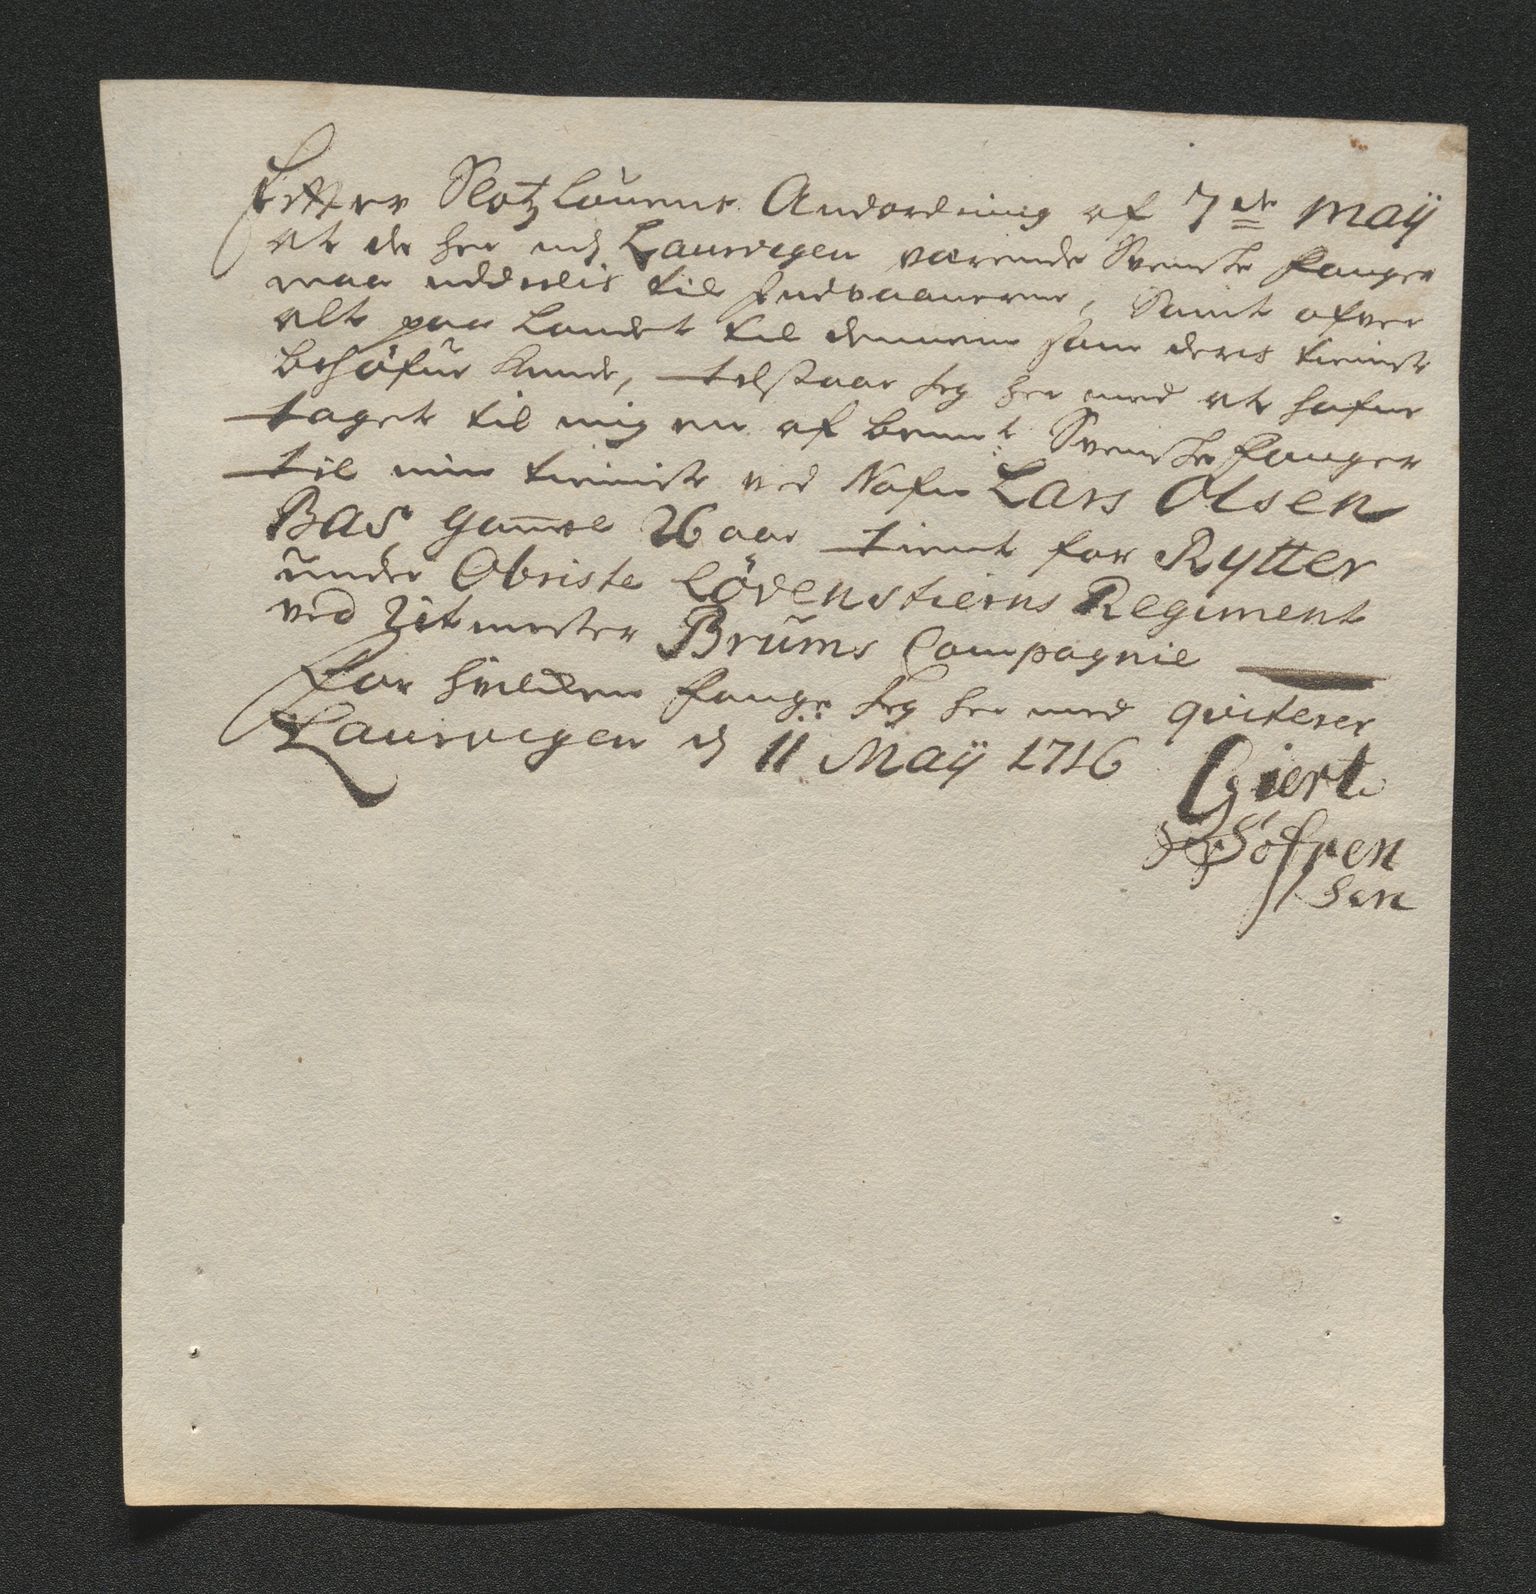 Effter Slotzlouens Andordning af 7de Maÿ
at de her udj Laurvigen værende Svenske fanger
maa uddeelis til Indvaanerne, Samt ofver
alt paa Landet til dennem som deris tieniste
behøfùe kunde, tilstaar Jeg her med at hafue
taget til mig en af bemt: Svenske fanger
til min tieniste ved Nafn Lars Olsen
Bas, gammel 26 aar tient for Rytter
ùnder Obriste Lövenstierns Regiment
ved Ritmester Brùms Compagnie
for hvilcken fange Jeg her med qviterer
Laurvigen dj 11 Maÿ 1716
Giert
Söfren
Sen